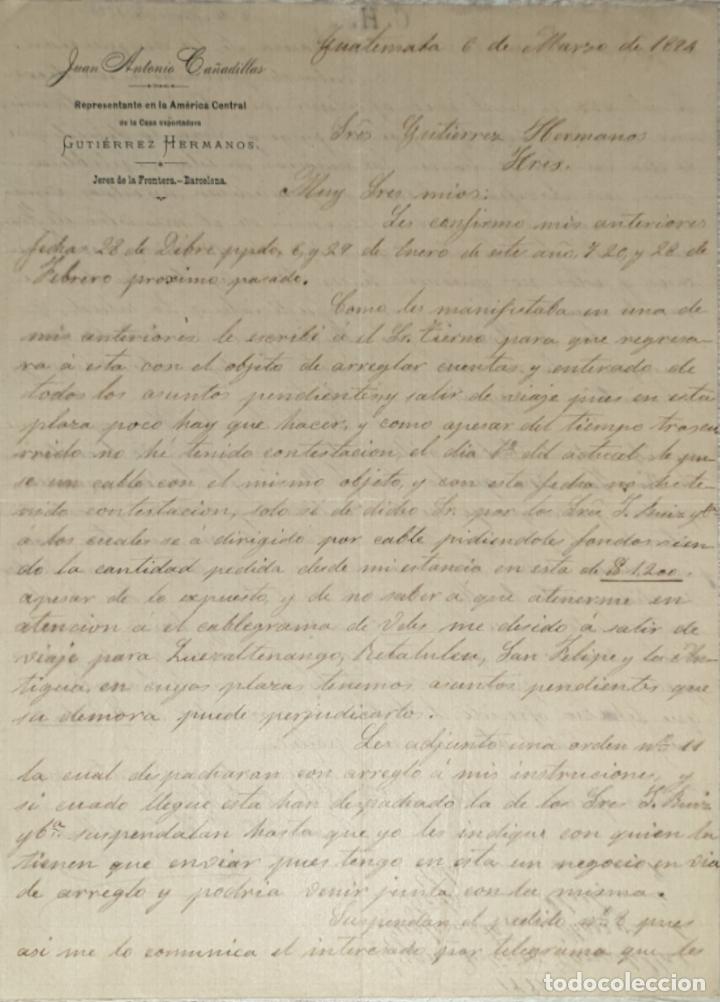 Juan Antonio Cañadillas
Representante en la América Central
de la Casa exportadora
GUTIÉRREZ HERMANOS.
Jerez de la Frontera.—Barcelona.
Guatemala 6 de Marzo de 1894
Sres Gutiérrez Hermanos
Jerez.
Muy Sres mios:
Les confirmo mis anteriores
fechas 28 de Dibre ppdo. 6, y 29 de Enero de este año, y 20, y 28 de
Febrero proximo pasado.
Como les manifestaba en una de
mis anteriores le escribí á el Sr. Tierno para que regresa-
ra á esta con el objeto de arreglar cuentas y enterado de
todos los asuntos pendientes, y salir de viaje pues en esta
plaza poco hay que hacer, y como apesar del tiempo trascu
rrido no hé tenido contestacion, el dia 1º del actual le pu-
se un cable con el mismo objeto, y con esta fecha no he te-
nido contestacion, solo sé de dicho Sr. por los Sres J. Ruiz y Cª
á los cuales se á dirigido por cable pidiendole fondos sien-
do la cantidad pedida desde mi estancia en esta de $ 1,200.
apesar de lo expuesto, y de no saber á que atenerme en
atencion a el cablegrama de Vdes me desido á salir de
viaje para Quezaltenango, Retaluleu, San Felipe y la An-
tigua, en cuyas plazas tenemos asuntos pendientes que
su demora puede perjudicarlos.
Les adjunto una orden nº 11
la cual despacharan con arreglo á mis instruciones, y
si cuado llegue esta han despachado la de los Sres J. Ruiz
y Cª suspendalan hasta que yo les indique con quien la
tienen que enviar pues tengo en esta un negocio en via
de arreglo y podria venir junta con la misma.
Suspendan el pedido nº 8 pues
asi me lo comunica el interezado por telegrama que les
todocoleccion.net